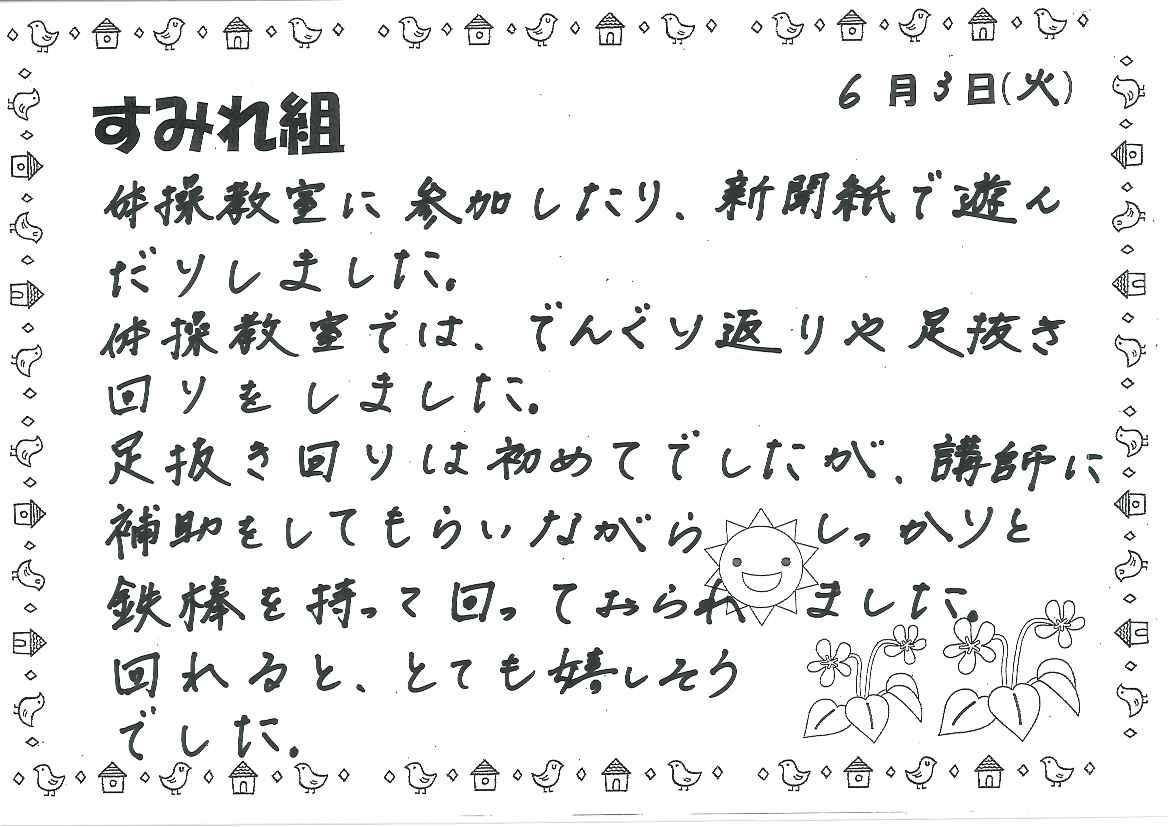 6月3日(火)
すみれ組
体操教室に参加したり、新聞紙で遊ん
だりしました。
体操教室では、でんぐり返りや足抜き
回りをしました。
足抜き回りは初めてでしたが、講師に
補助をしてもらいながら しっかりと
鉄棒を持って回っておられ ました。
回れると、とても嬉しそう
でした。